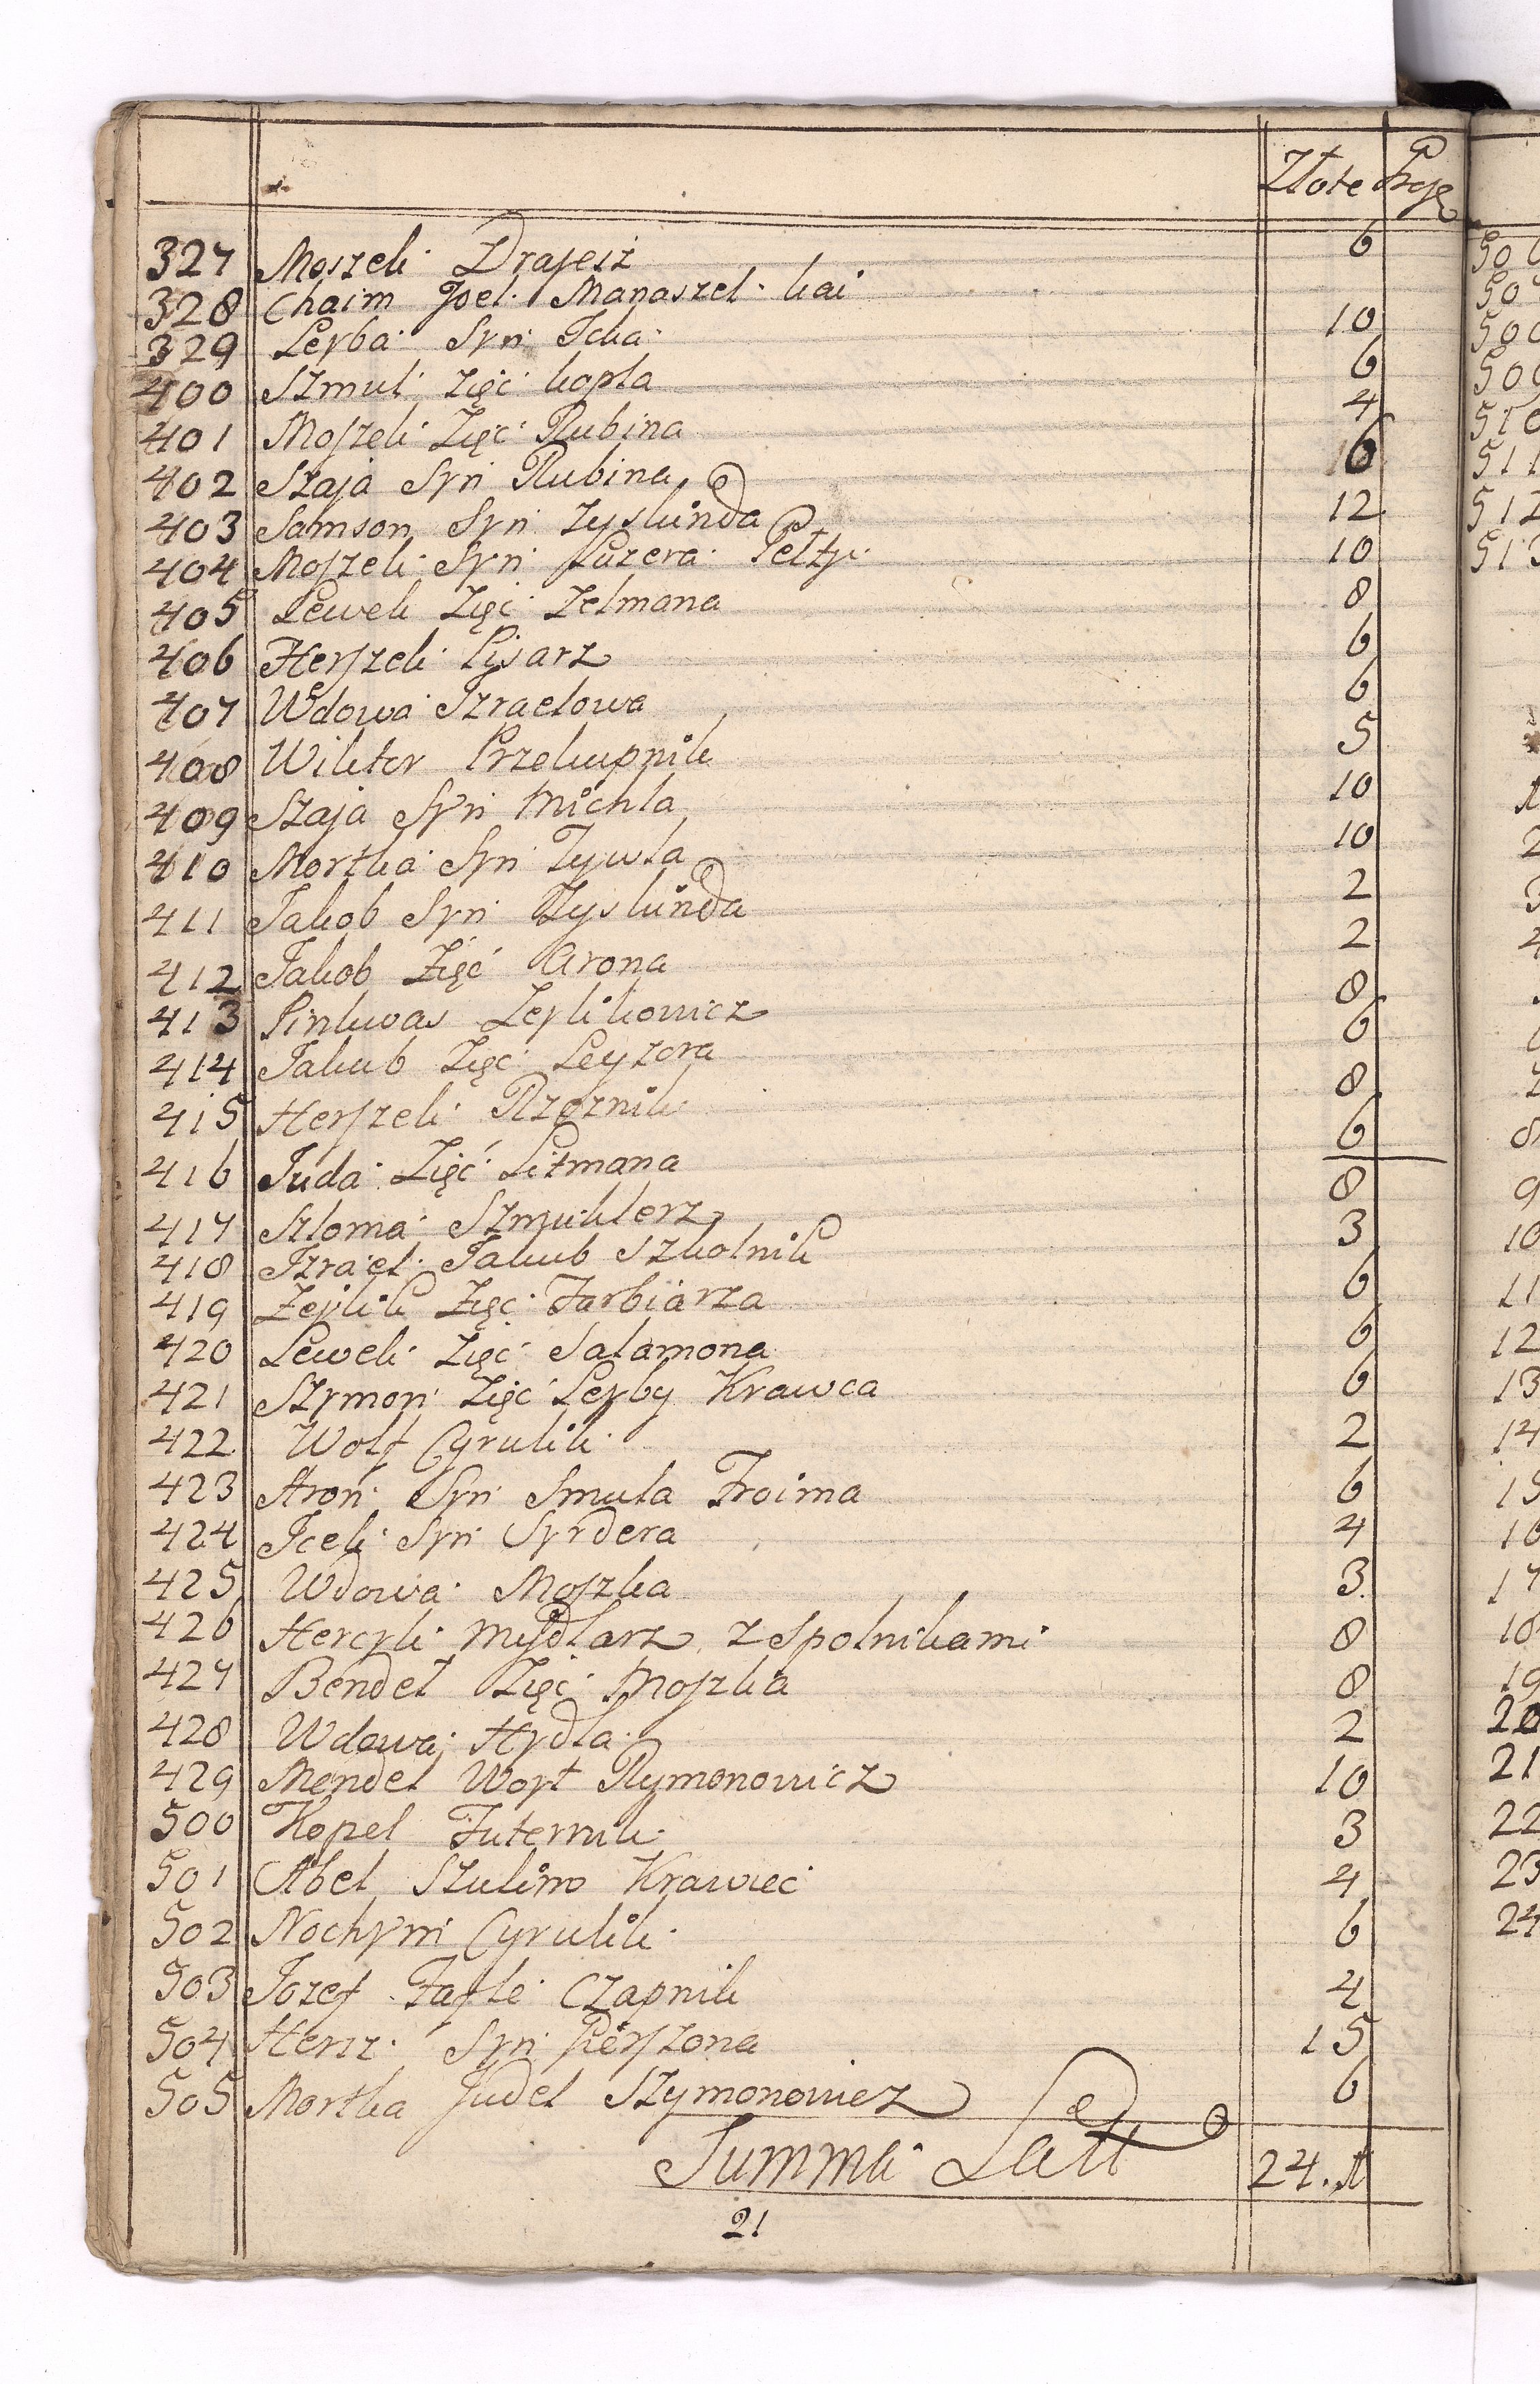 Złote Grosz
327 Moszek Drajesz 6
328 Chaim Joel Manaszel kai
329 Leyba Syn Icka 10
400 Szmul Zięć kopla 6
401 Moszek Zięć Rubina 4
402 Szaja Syn Rubina 16
403 Samson Syn Zyskinda 12
404 Moszek Syn Łazera Peltz 10
405 Lewek Zięć Zelmana 8
406 Herszek Pisarz 6
407 Wdowa Izraelowa 6
408 Wiktor Przekupnik 5
409 Szaja Syn Michla 10
410 Mortka Syn Zywla 10
411 Jakob Syn Zyskinda 2
412 Jakob Zięć Arona 2
413 Pinkwas Zeylikowicz 8
414 Jakub Zięć Leyzora 6
415 Herszek Rzeznik 8
416 Juda Zięć Litmana 6
417 Szloma Szmuklerz 8
418 Izrael Jakub Szkolnik 3
419 Zeylik Zięć Farbiarza 6
420 Lewek Zięć Salamona 6
421 Szymon Zięć Leyby Krawca 6
422 Wolf Cyrulik 2
423 Aron Syn Smula Froima 6
424 Icek Syn Syrdera 4
425 Wdowa Moszka 3
426 Hercyk Mydlarz z Spolnikami 8
427 Bendet Zięć Moszka 8
428 Wdowa Hydla 2
429 Mendel Woyt Rymonowicz 10
500 Kopel Futernik 3
501 Abel Szulim Krawiec 4
502 Nochym Cyrulik 6
503 Jozef Fayle Czapnik 4
504 Hersz Syn Pierszona 15
505 Mortka Judel Szymonowicz 6
Summa Latt 24.1
21